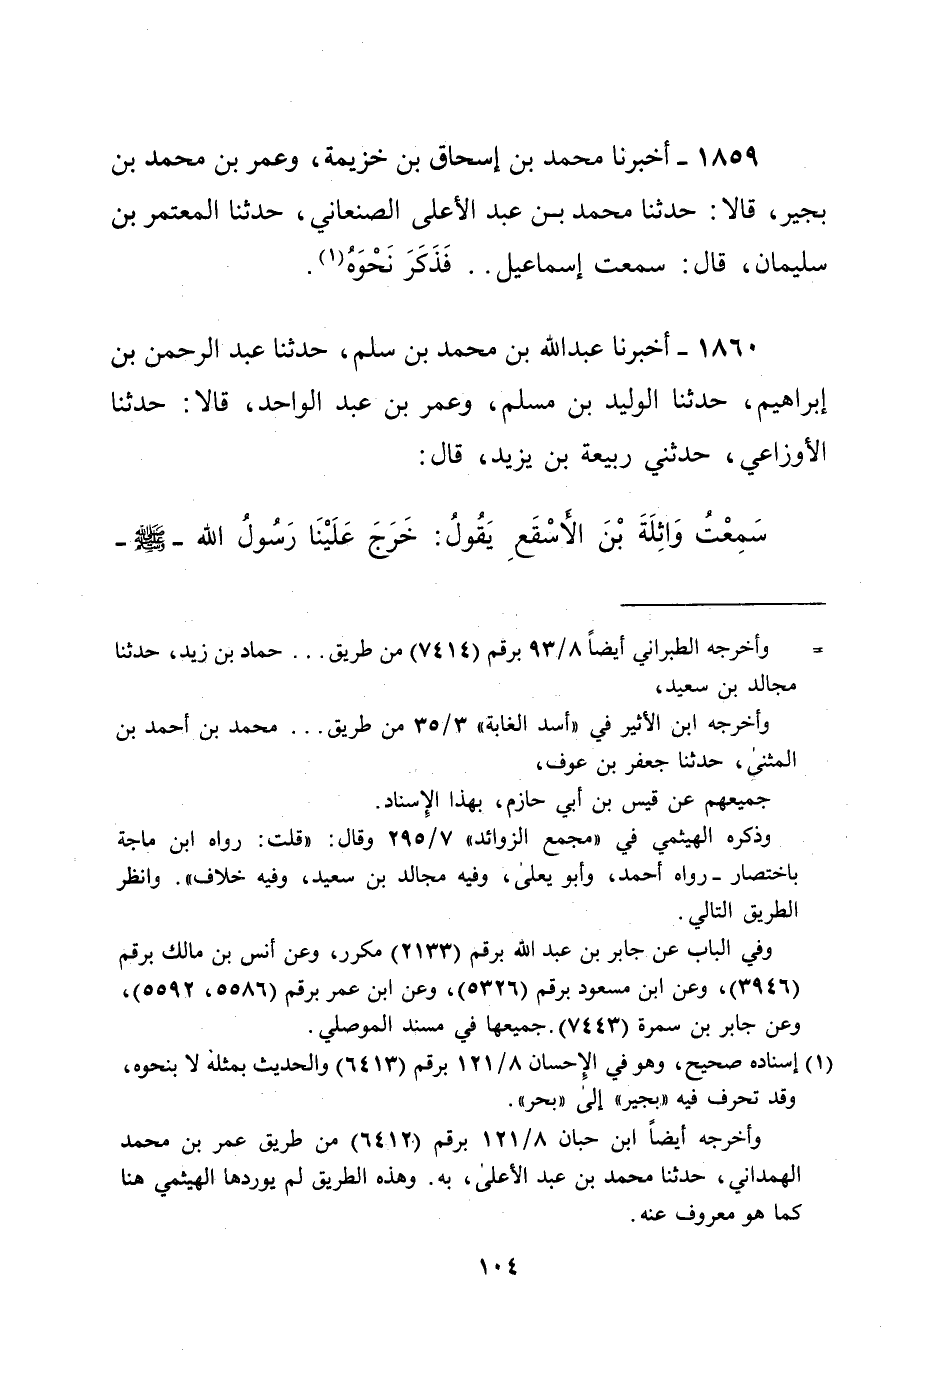 ١٨٥٩ - أخبرنا محمد بن إسحاق بن خزيمة، وعمر بن محمد بن
بجير، قالا: حدثنا محمد بـن عبد الأعلى الصنعاني، حدثنا المعتمر بن
سليمان، قال: سمعت إسماعيل.. فَذَكَرَ نَحْوَهُ(١).
١٨٦٠ - أخبرنا عبدالله بن محمد بن سلم، حدثنا عبد الرحمن بن
إبراهيم، حدثنا الوليد بن مسلم، وعمر بن عبد الواحد، قالا: حدثنا
الأوزاعي، حدثني ربيعة بن يزيد، قال:
سَمِعْتُ وَاثِلَةَ بْنَ الأَسْقَعِ يَقُولُ: خَرَجَ عَلَيْنَا رَسُولُ الله - ﷺ -
= وأخرجه الطبراني أيضاً ٩٣/٨ برقم (٧٤١٤) من طريق... حماد بن زيد، حدثنا
مجالد بن سعيد،
وأخرجه ابن الأثير في «أسد الغابة» ٣٥/٣ من طريق... محمد بن أحمد بن
المثنىٰ، حدثنا جعفر بن عوف،
جميعهم عن قيس بن أبي حازم، بهذا الإسناد.
وذكره الهيثمي في «مجمع الزوائد» ٢٩٥/٧ وقال: «قلت: رواه ابن ماجة
باختصار - رواه أحمد، وأبو يعلىٰ، وفيه مجالد بن سعيد، وفيه خلاف». وانظر
الطريق التالي.
وفي الباب عن جابر بن عبد الله برقم (٢١٣٣) مكرر، وعن أنس بن مالك برقم
(٣٩٤٦)، وعن ابن مسعود برقم (٥٣٢٦)، وعن ابن عمر برقم (٥٥٨٦، ٥٥٩٢)،
وعن جابر بن سمرة (٧٤٤٣). جميعها في مسند الموصلي.
(١) إسناده صحيح، وهو في الإحسان ١٢١/٨ برقم (٦٤١٣) والحديث بمثله لا بنحوه،
وقد تحرف فيه «بجير» إلىٰ «بحر».
وأخرجه أيضاً ابن حبان ١٢١/٨ برقم (٦٤١٢) من طريق عمر بن محمد
الهمداني، حدثنا محمد بن عبد الأعلىٰ، به. وهذه الطريق لم يوردها الهيثمي هنا
كما هو معروف عنه.
١٠٤